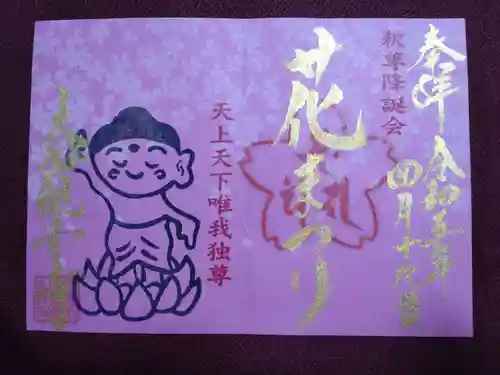 奉拝 令和五年
四月十九日
釈尊降誕会
花まつり
天上天下唯我独尊